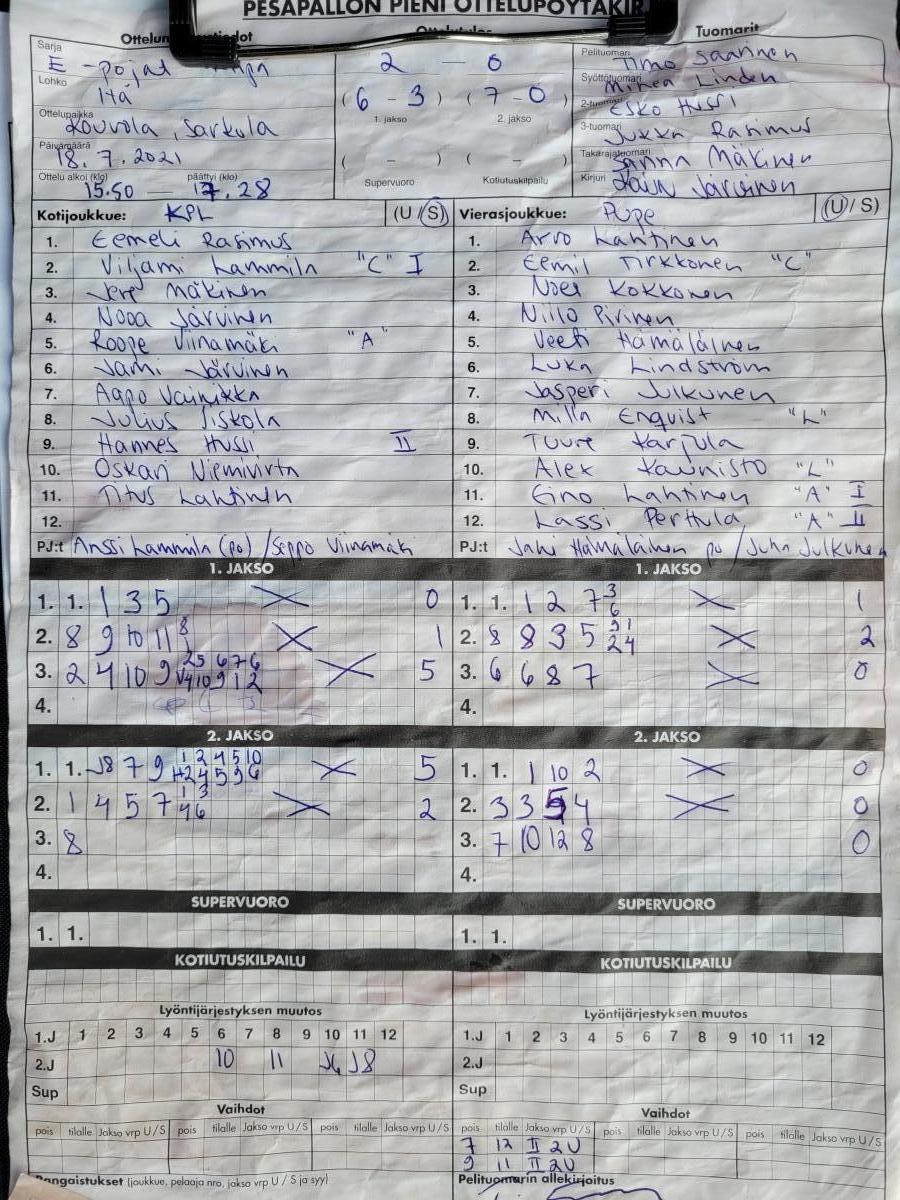 PESÄPALLON PIENI OTTELUPÖYTÄKIRJ
Tuomarit
Sarja E -pojat
Lohko Itä
Ottelupaikka Kouvola, Sarkola
Päivämäärä 18.7.2021
Ottelu alkoi (klo) päättyi (klo)
15.50 — 17.28
2 - 0
(6 - 3) (7 - 0)
1. jakso 2. jakso
( - ) ( - )
Supervuoro Kotiutuskilpailu
Pelituomari Timo Saarinen
Syöttötuomari Mikea Linden
2-tuomari Esko Hussi
3-tuomari Jukka Rasimus
Takarajatuomari Sanna Mäkinen
Kirjuri Järvinen
Kotijoukkue: KPL (U / S)
1. Eemeli Rasimus
2. Viljami Lammila "C" I
3. Jere Mäkinen
4. Nooa Järvinen
5. Roope Viinamäki "A"
6. Jami Järvinen
7. Aapo Vainikka
8. Julius Siskola
9. Hannes Hussi II
10. Oskari Niemivirta
11. Titus Lahtinen
12.
PJ:t Anssi Lammila (po) / Seppo Viinamäki
Vierasjoukkue: Pupe (U / S)
1. Arvo Lahtinen
2. Eemil Tirkkonen "C"
3. Noel Kokkonen
4. Niilo Pirinen
5. Veeti Hämäläinen
6. Luka Lindström
7. Jasperi Julkunen
8. Milla Enqvist "L"
9. Tuure Karjula
10. Alex Kaunisto "L"
11. Eino Lahtinen "A" I
12. Lassi Perttula "A" II
PJ:t Jani Hämäläinen po / Juha Julkunen
1. JAKSO
1. 1. 1 3 5 0
2. 8 9 10 11 8 1
3. 2 4 10 9 5
4.
1. JAKSO
1. 1. 1 2 7 3 6 1
2. 8 8 3 5 9 1 2 4 2
3. 6 6 8 7 0
4.
2. JAKSO
1. 1. J8 7 9 1 2 4 5 10 5
2. 1 4 5 7 1 3 4 6 2
3. 8
4.
2. JAKSO
1. 1. 1 10 2 0
2. 3 3 5 4 0
3. 7 10 12 8 0
4.
SUPERVUORO
1. 1.
SUPERVUORO
1. 1.
KOTIUTUSKILPAILU
KOTIUTUSKILPAILU
Lyöntijärjestyksen muutos
1.J 1 2 3 4 5 6 7 8 9 10 11 12
2.J 10 11 J6 J8
Sup
Lyöntijärjestyksen muutos
1.J 1 2 3 4 5 6 7 8 9 10 11 12
2.J
Sup
Vaihdot
pois tilalle Jakso vrp U / S pois tilalle Jakso vrp U / S pois tilalle Jakso vrp U / S
Vaihdot
pois tilalle Jakso vrp U / S pois tilalle Jakso vrp U / S pois tilalle Jakso vrp U / S
7 12 II 2U
9 11 II 2U
Rangaistukset (joukkue, pelaaja nro, jakso vrp U / S ja syy)
Pelituomarin allekirjoitus